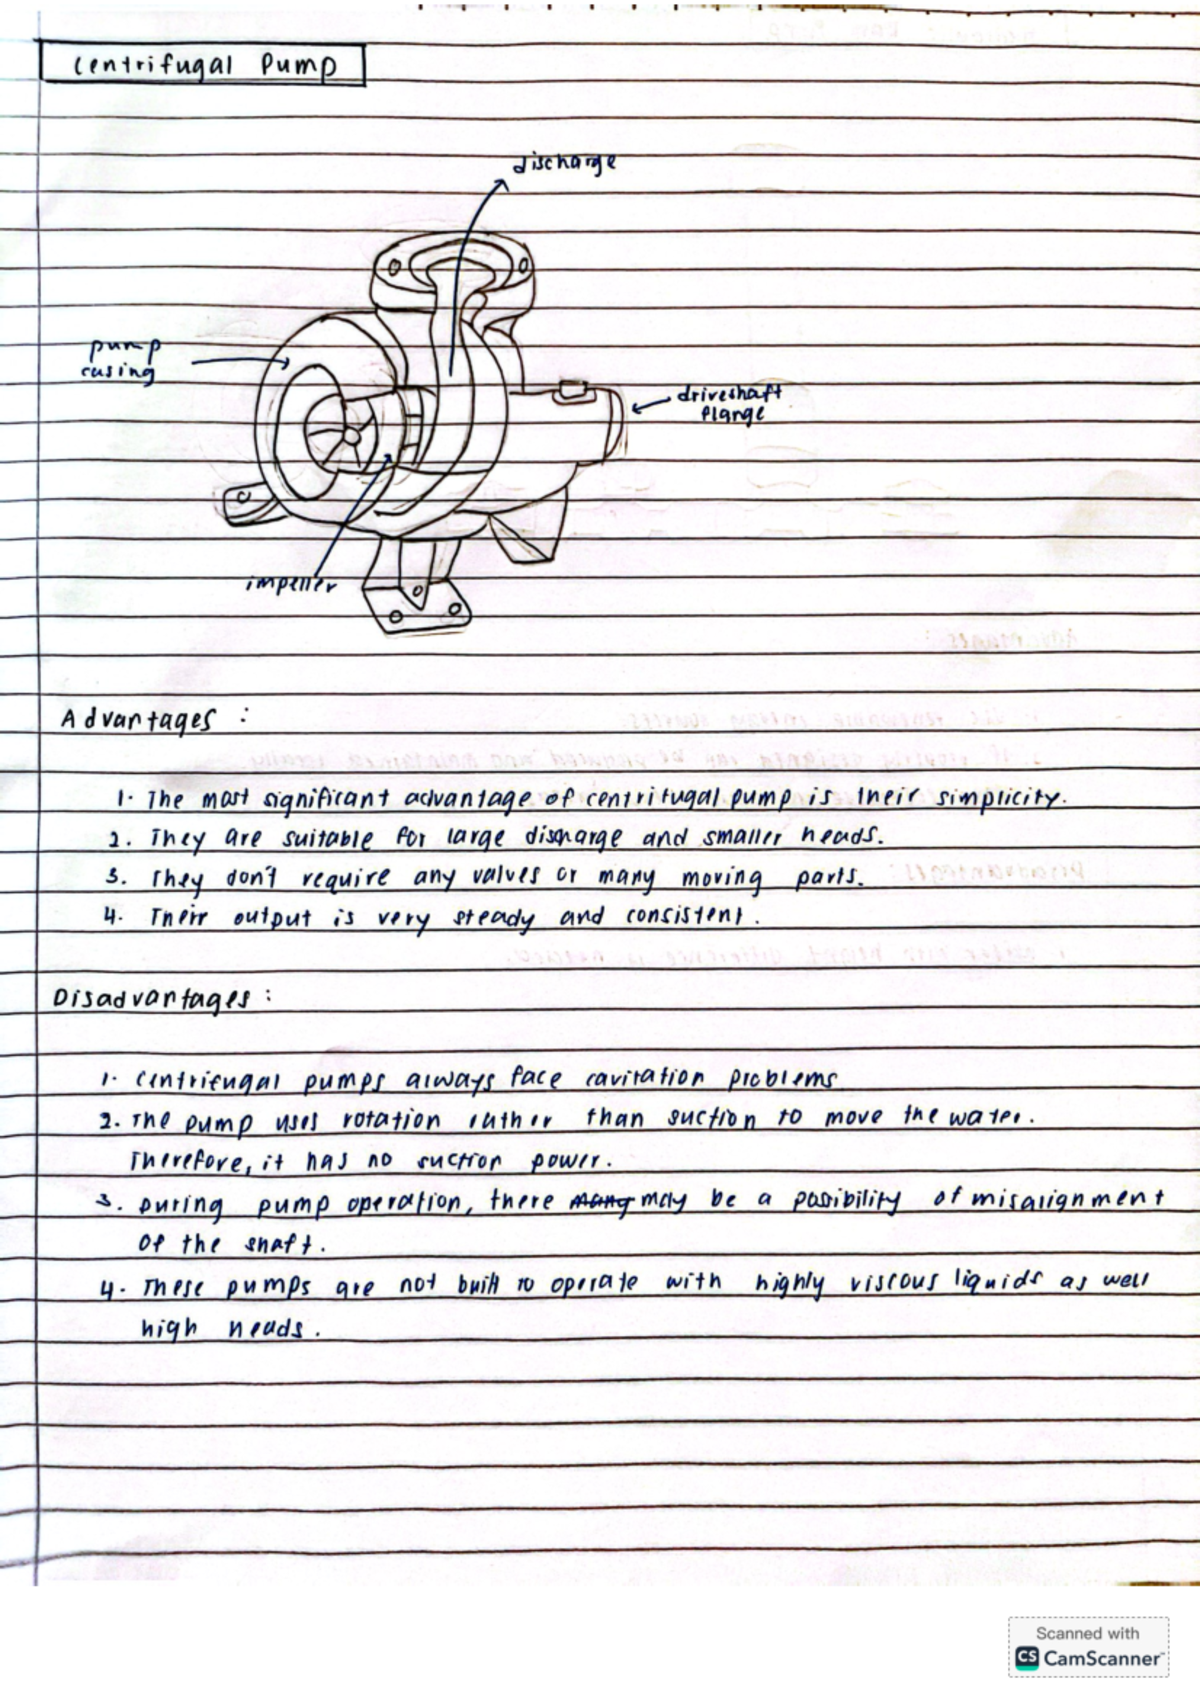 Centrifugal Pump
discharge
pump
casing
driveshaft
flange
impeller
Advantages :
1. The most significant advantage of centrifugal pump is their simplicity.
2. They are suitable for large discharge and smaller heads.
3. They don't require any valves or many moving parts.
4. Their output is very steady and consistent.
Disadvantages :
1. Centrifugal pumps always face cavitation problems.
2. The pump uses rotation rather than suction to move the water.
Therefore, it has no suction power.
3. During pump operation, there many may be a possibility of misalignment
of the shaft.
4. These pumps are not built to operate with highly viscous liquids as well
high heads.
Scanned with
CS CamScanner